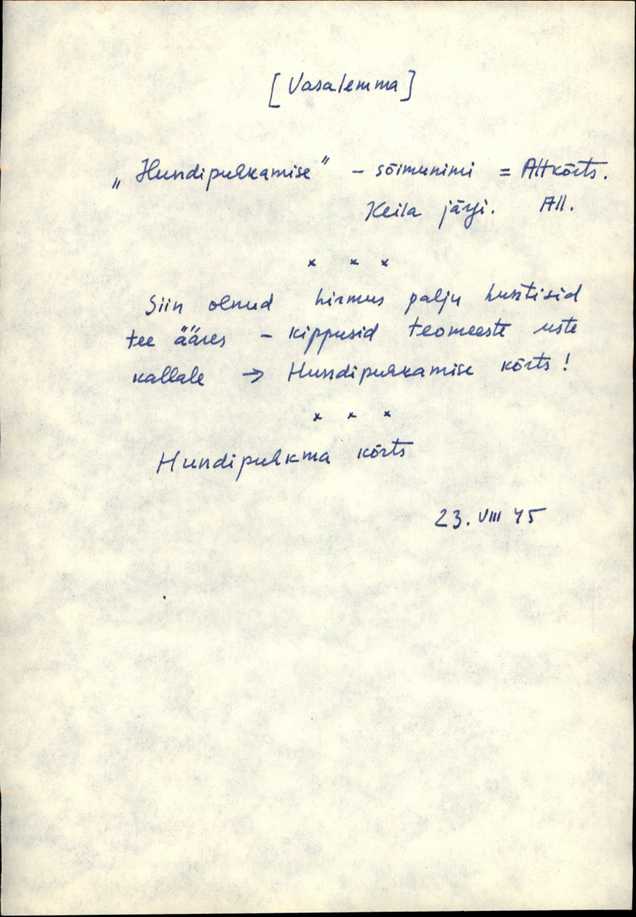 [Vasalemma]
„Hundipurkamise” – sõimunimi = Allkõrts.
Keila järgi. All.
x x x
Siin olnud hirmus palju huntisid
tee ääres – kippusid teomeeste uste
kallale → Hundipurkamise kõrts!
x x x
Hundipurkma kõrts
23. VIII 45